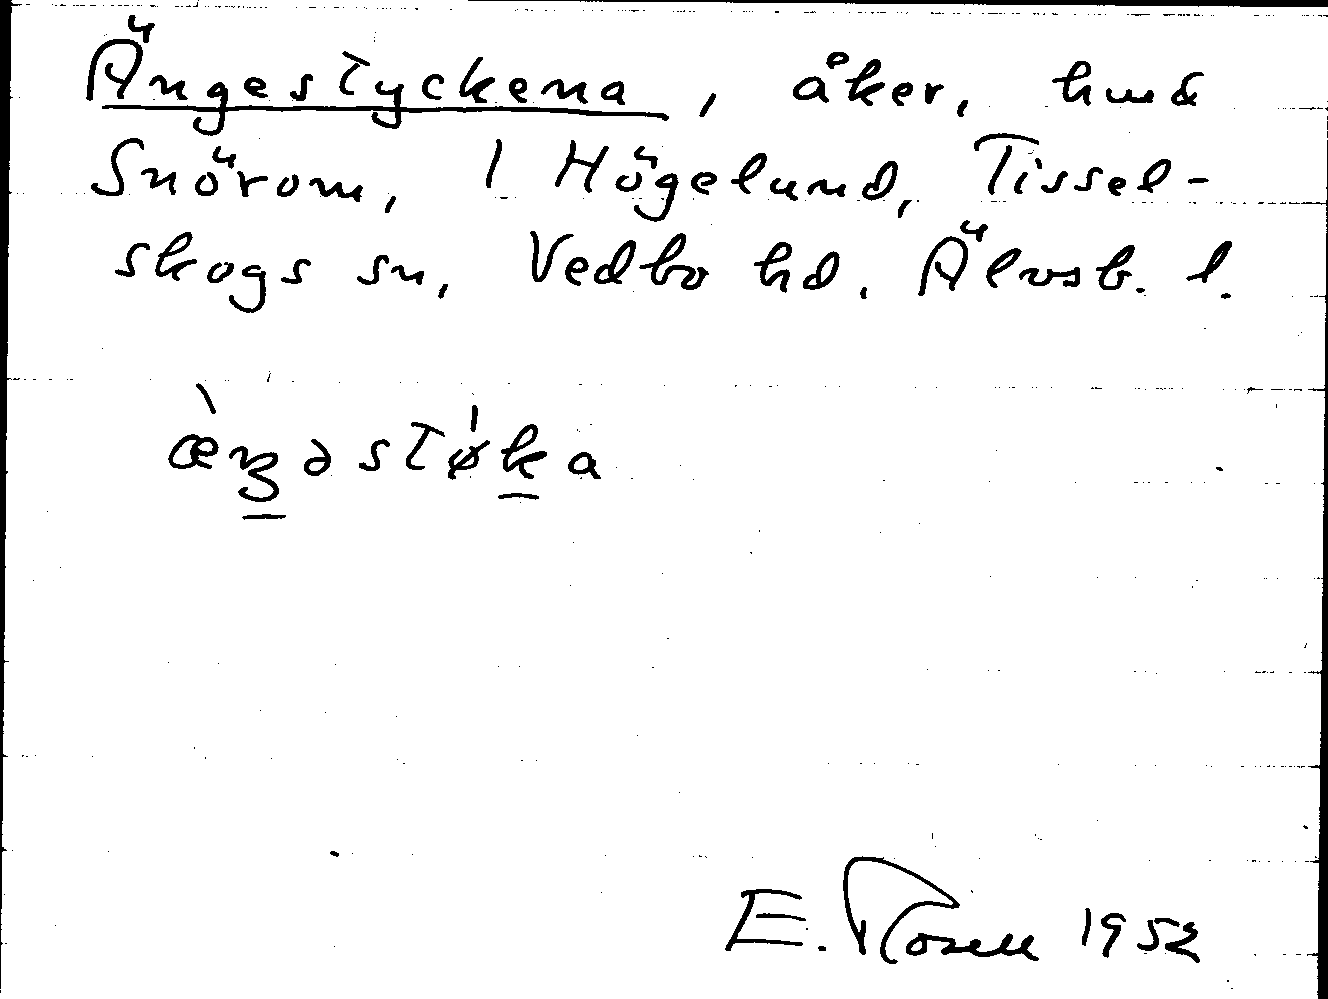 Ängestyckena, åker, hmd
Snörom, 1 Högelund, Tissel-
skogs sn, Vedbo hd. Älvsb. l.
æ̀ŋəstø̍ka
E. Rosell 1952